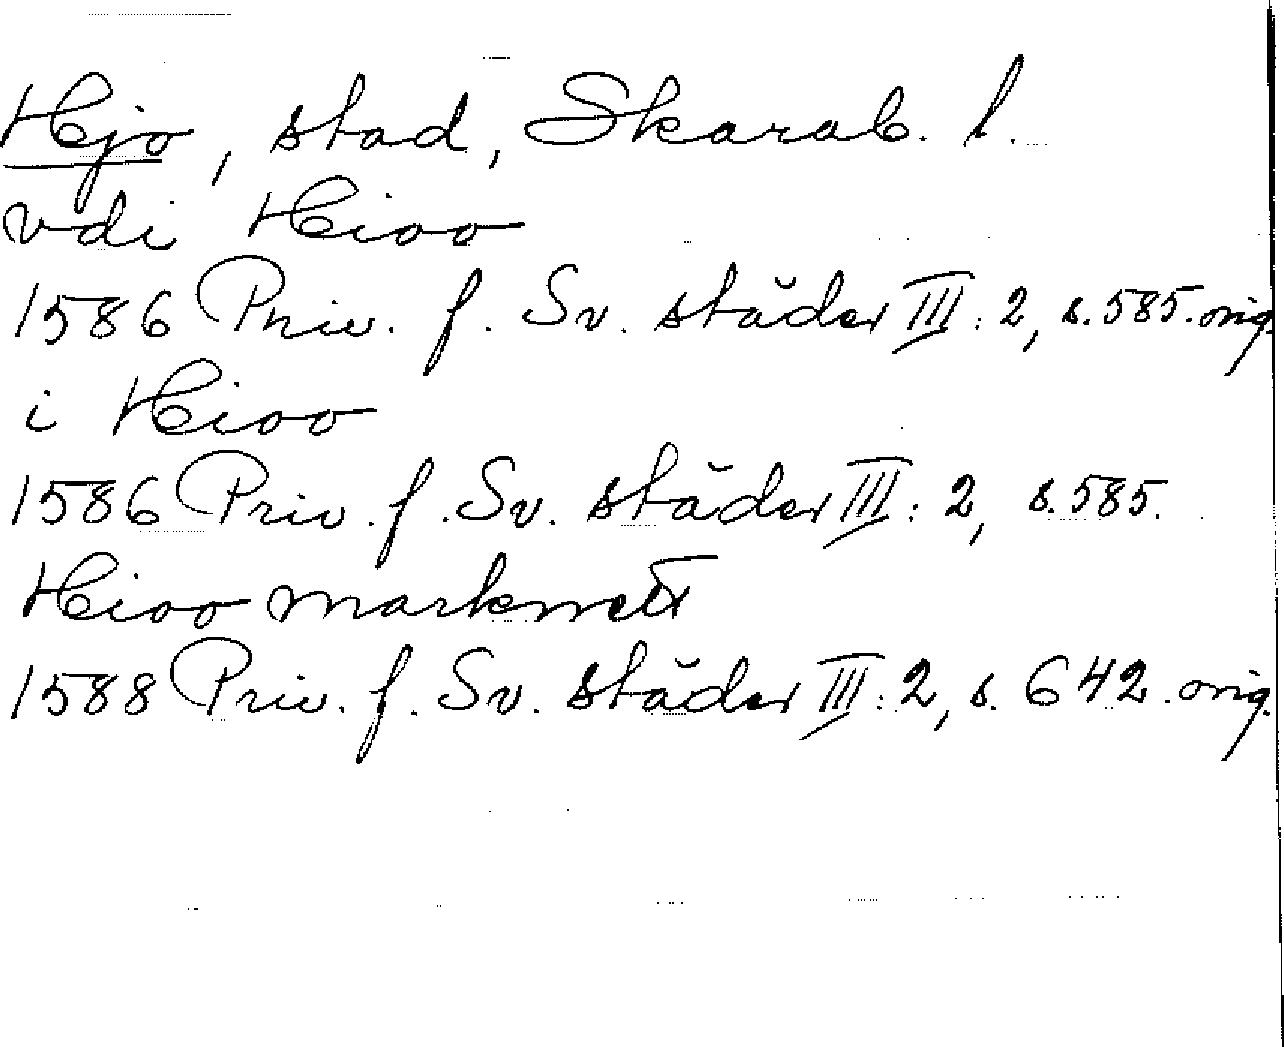 Hjo, stad, Skarab. l.
vdi Hioo
1586 Priv. f. Sv. städer III: 2, s. 585. orig.
i Hioo
1586 Priv. f. Sv. städer III: 2, s. 585.
Hioo marknett
1588 Priv. f. Sv. städer III: 2, s. 642. orig.